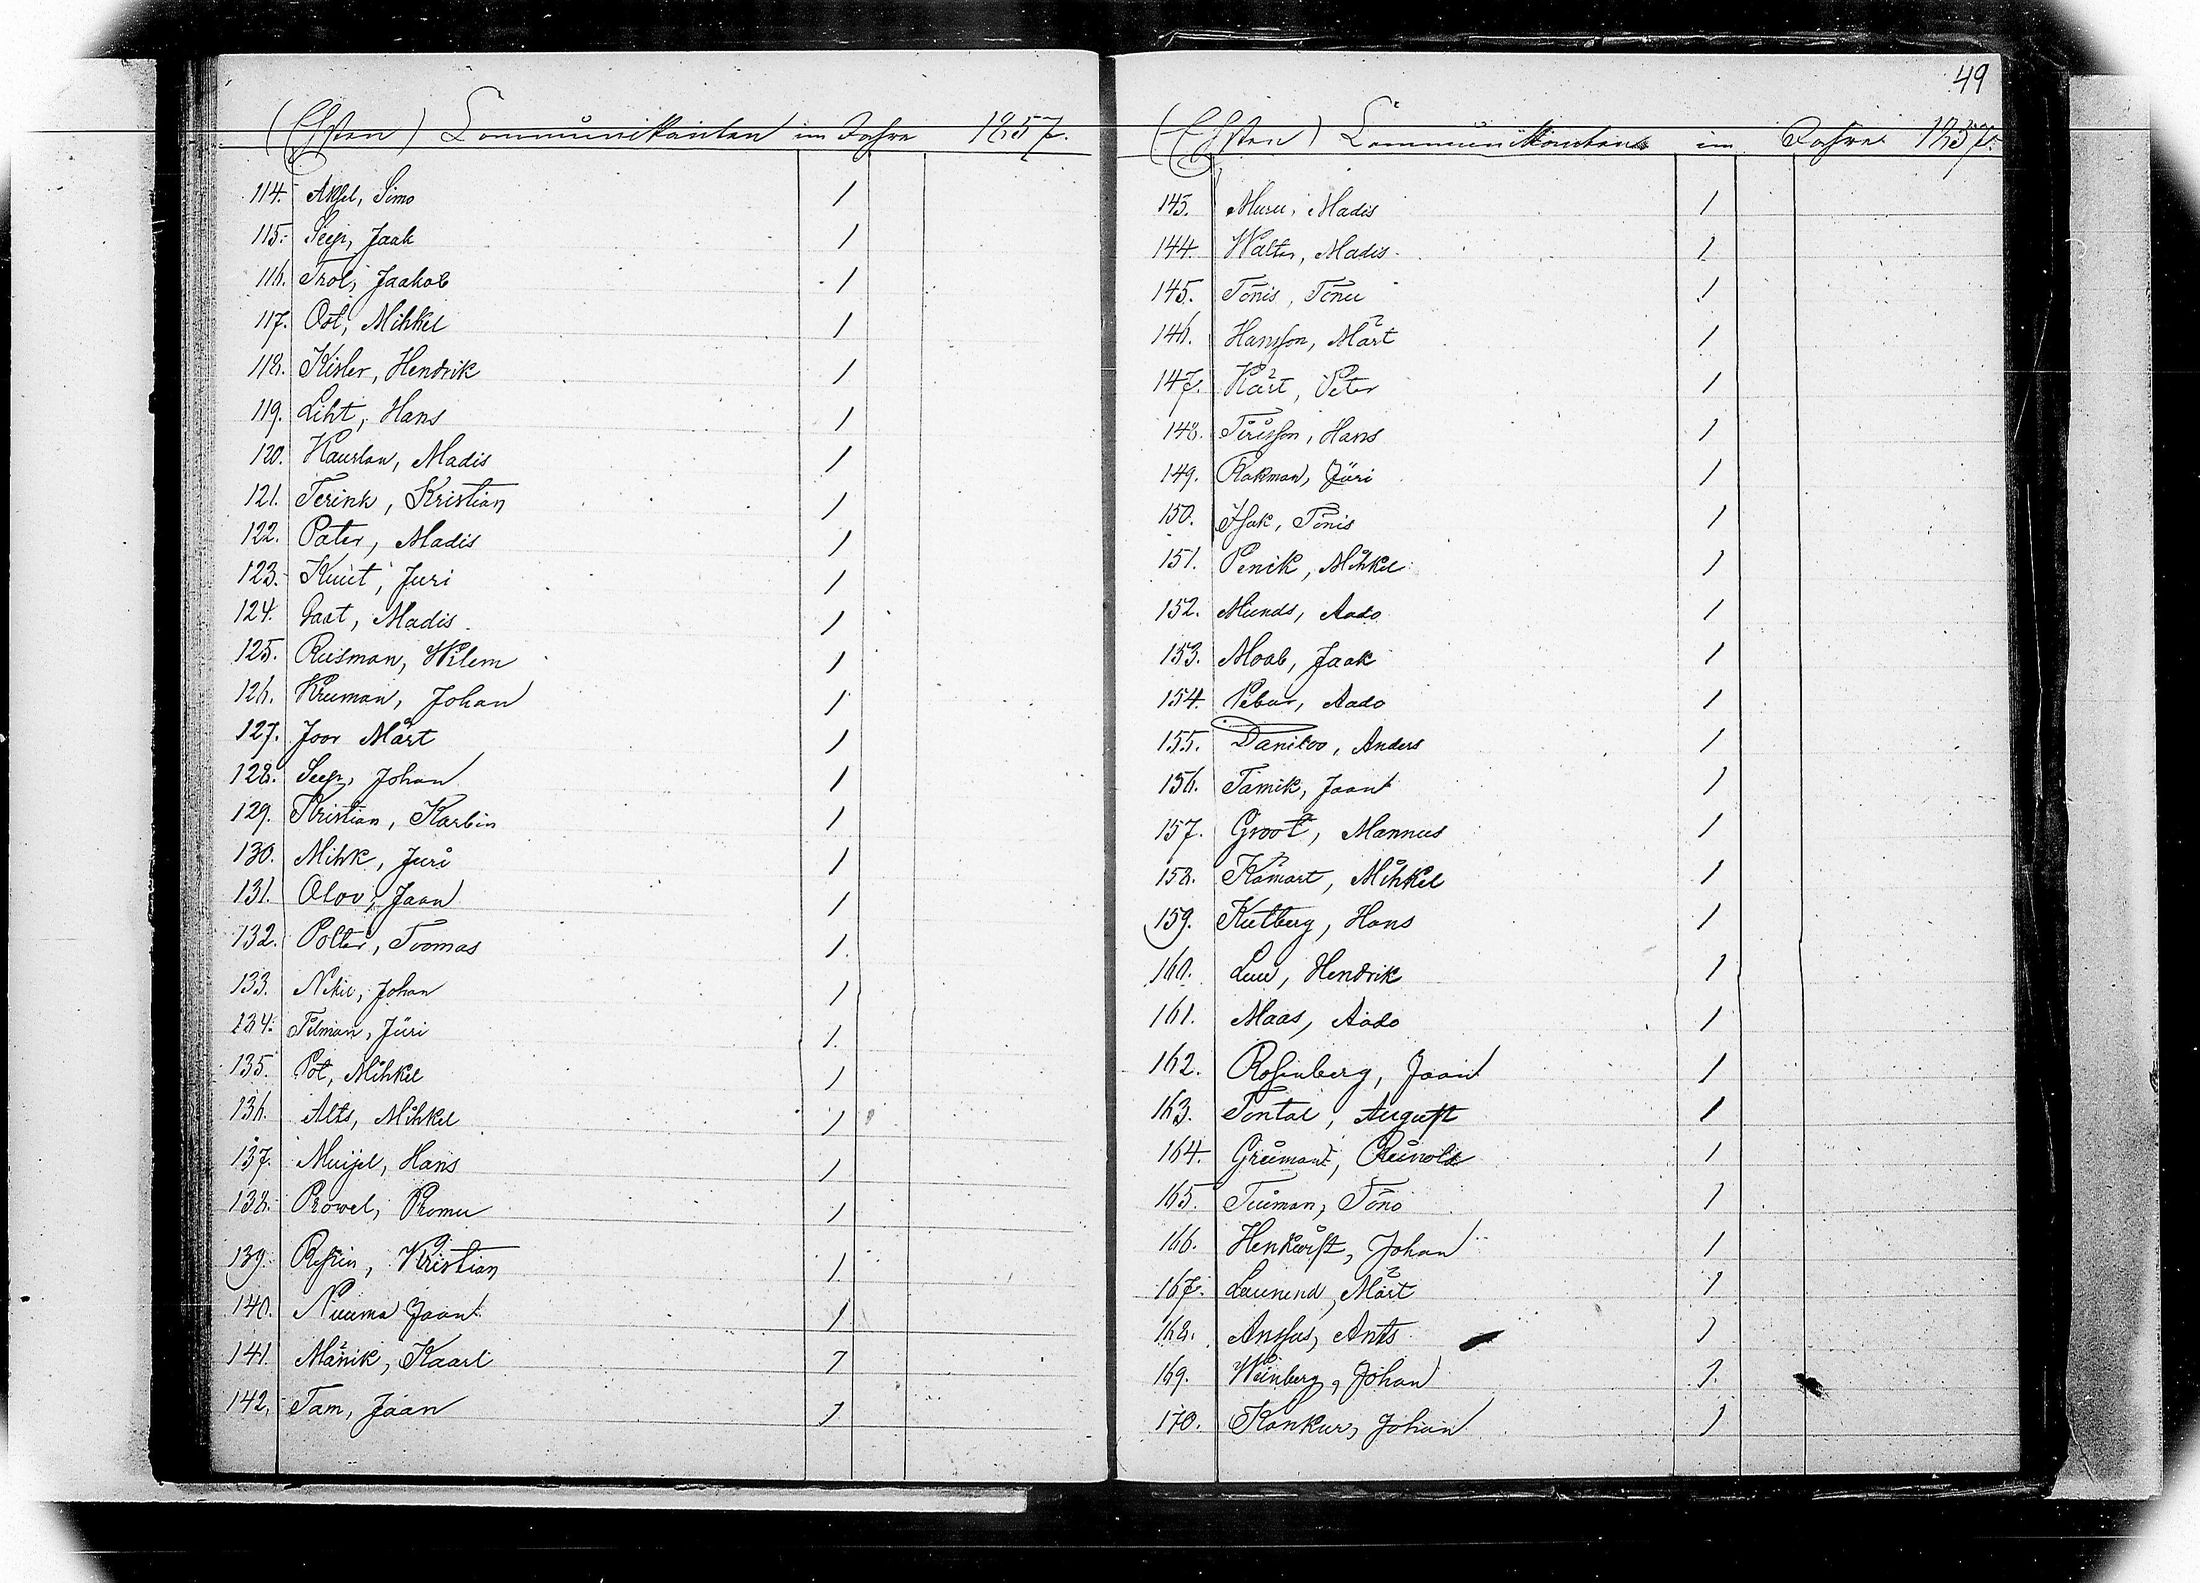 (Ehsten) Communikanten im Jahre 1857.
114. Aksel, Simo 1
115. Seep, Jaak 1
116. Trol, Jaakob 1
117. Ost, Mihkel 1
118. Kisler, Hendrik 1
119. Liht, Hans 1
120. Madis 1
121. Terink, Kristian 1
122. Pater, Madis 1
123. Juri 1
124. Madis 1
125. Wilem 1
126. Johan 1
127. Joor Märt 1
128. Seep, Johan 1
129. Kristian, Karbin 1
130. Mihk, Juri 1
131. Olov, Jaan 1
132. Polter, Toomas 1
133. Johan 1
134. Tilman, Jüri 1
135. Pot, Mihkel 1
136. Alts, Mihkel 1
137. Hans 1
138. 1
139. Kristian 1
140. Nuuma Jaan 1
141. Mänik, Kaarl 1
142. Tam, Jaan 1
49
(Ehsten) Communikanten im Jahre 1857.
143. Muru, Madis 1
144. Walter, Madis 1
145. Tõnis, Tõnu 1
146. Hansson, Märt 1
147. Kärt, Peter 1
148. Hans 1
149. Jüri 1
150. Isak, Tõnis 1
151. Penik, Mihkel 1
152. Munds, Aado 1
153. Moab, Jaak 1
154. Aado 1
155. Daniloo, Anders 1
156. Tamik, Jaan 1
157. Groot, Mannus 1
158. Kämart, Mihkel 1
159. Kutberg, Hans 1
160. Luu, Hendrik 1
161. Maas, Aado 1
162. Rosenberg, Jaan 1
163. Tontal, August 1
164. Reinold 1
165. Tõno 1
166. Johan 1
167. Märt 1
168. Ansfus, Ants 1
169. Weinberg, Johan 1
170. Kankur, Johan 1